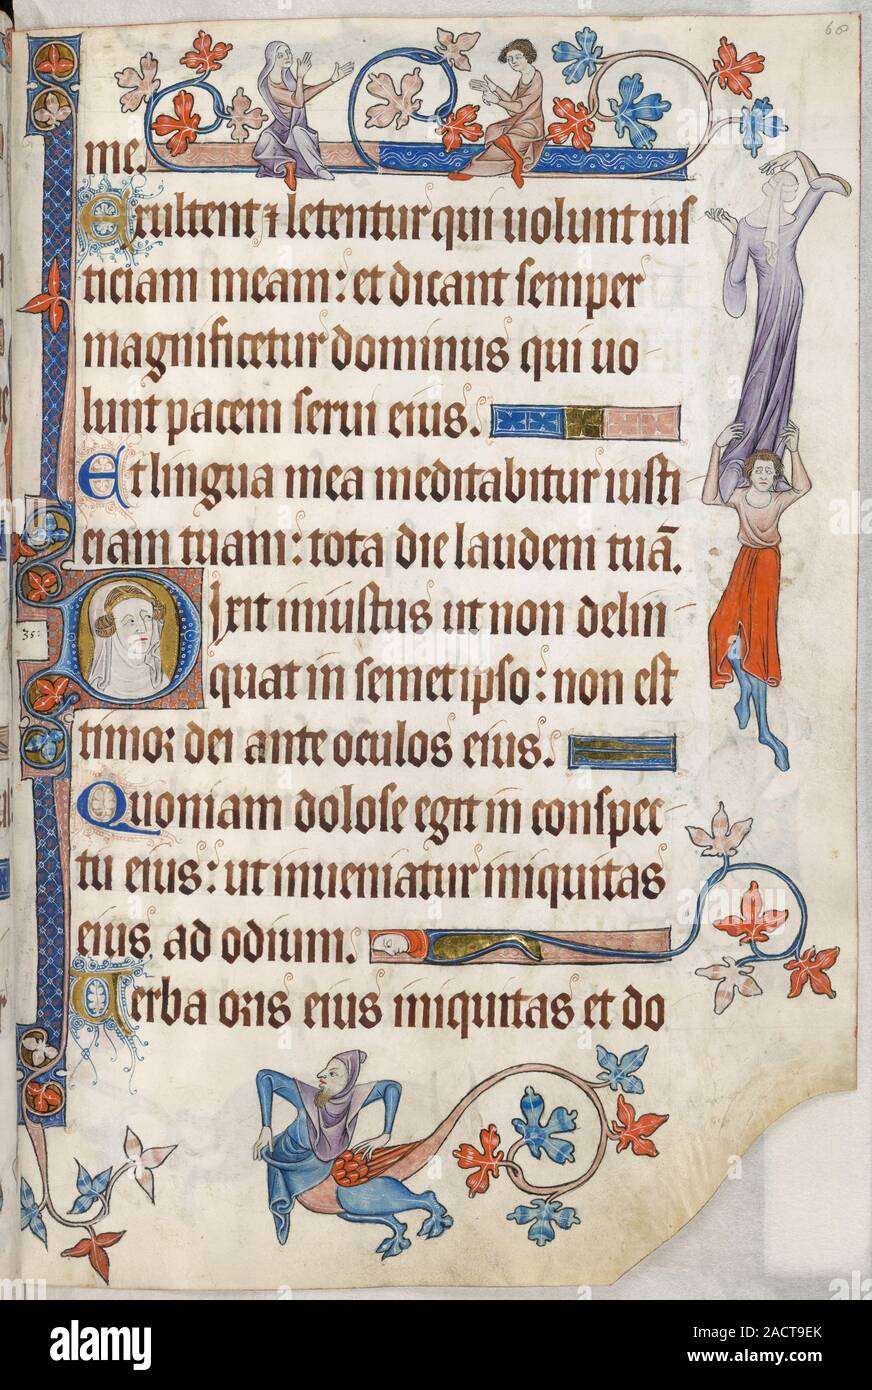 68
me.
Exultent ⁊ letentur qui uolunt ius
ticiam meam: et dicant semper
magnificetur dominus qui uo
lunt pacem serui eius.
Et lingua mea meditabitur iusti
ciam tuam: tota die laudem tuā.
35:
Dixit iniustus ut non delin
quat in semetipso: non est
timor dei ante oculos eius.
Quoniam dolose egit in conspec
tu eius: ut inueniatur iniquitas
eius ad odium.
Uerba oris eius iniquitas et do
alamy
Image ID: 2ACT9EK
www.alamy.com